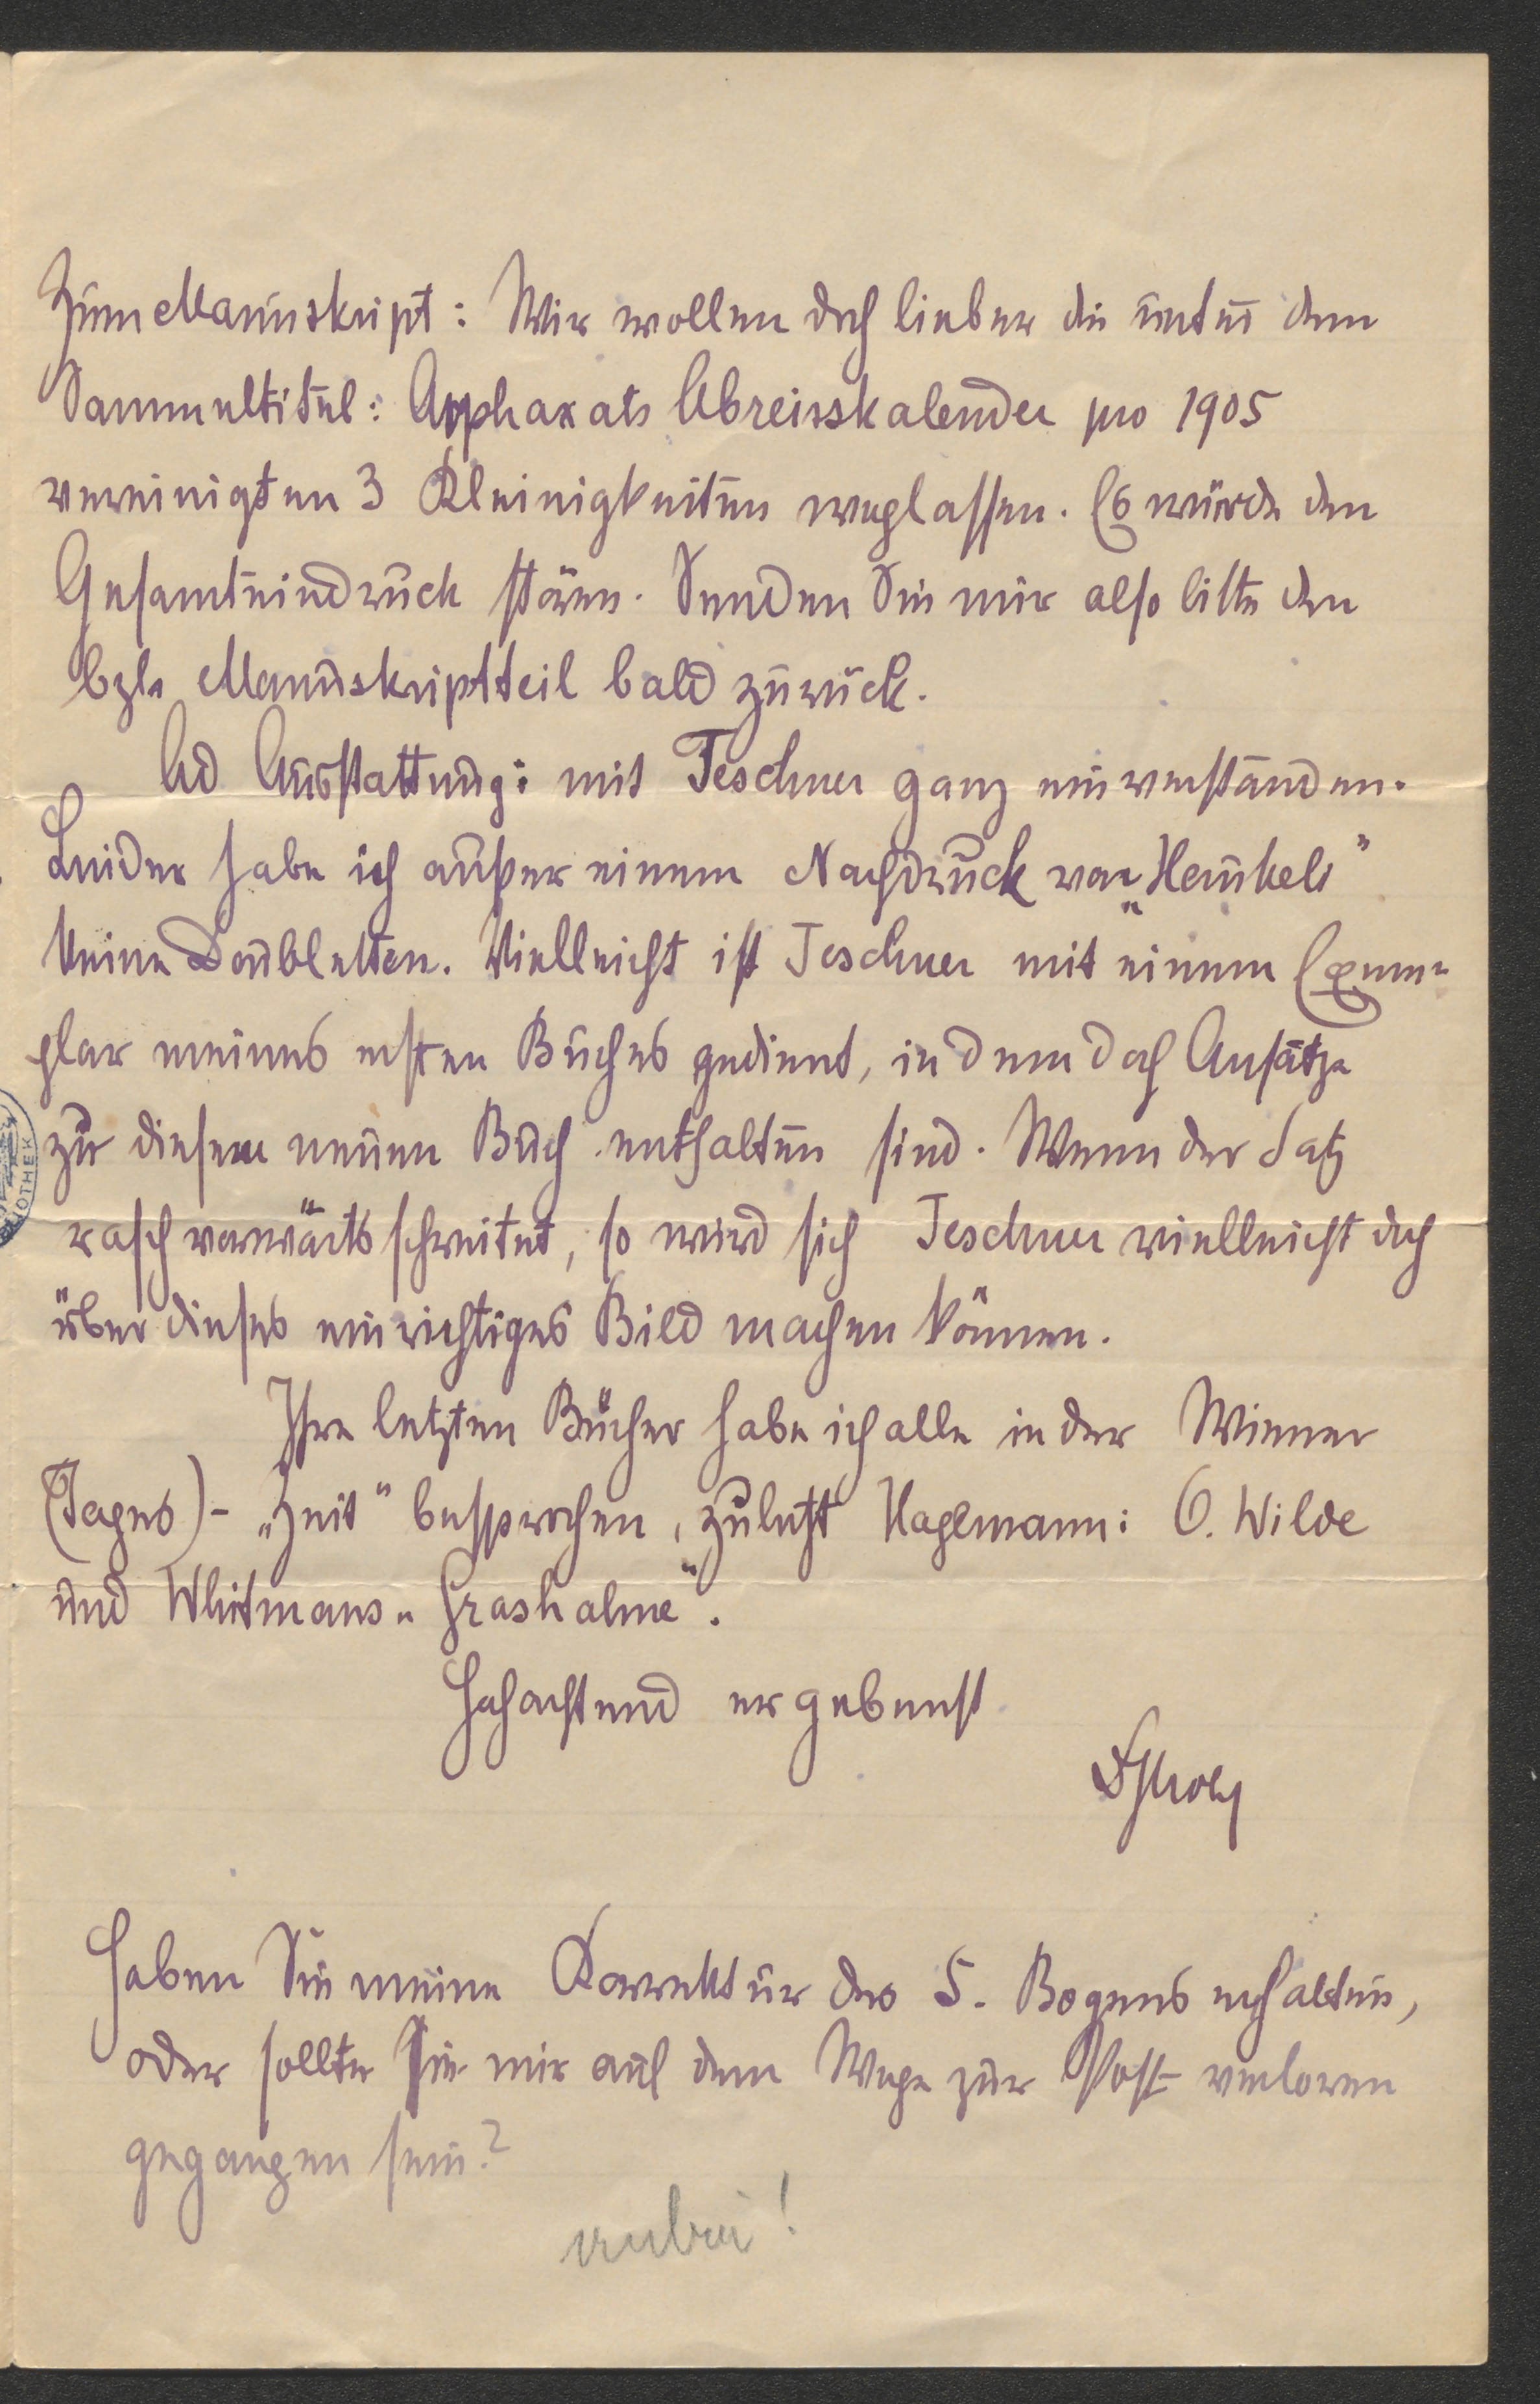 Zum Manuskript: Wir wollen doch lieber die unter dem
Sammeltitel: Arphaxats Abreisskalender pro 1905
vereinigten 3 Kleinigkeiten weglassen. Es würde den
Gesamteindruck stören. Senden Sie mir also bitte den
bzl. Manuskriptteil bald zurück.
Ad Ausstattung: mit Teschner ganz einverstanden.
Leider habe ich außer einem Nachdruck von „Henkels“
keine Doubletten. Vielleicht ist Teschner mit einem Exem-
plar meines ersten Buches gedient, in dem doch Ansätze
zu diesem neuen Buch enthalten sind. Wenn der Satz
rasch vorwärts schreitet, so wird sich Teschner vielleicht doch
über dieses ein richtiges Bild machen können.
Ihre letzten Bücher habe ich alle in der Wiener
(Tages)- „Zeit“ besprochen, zuletzt Hagemann: O. Wilde
und Whitmans „Grashalme“.
Hochachtend ergebenst
Haben Sie meine Korrektur des 5. Bogens erhalten,
oder sollte sie mir auf dem Wege zur Post verloren
gegangen sein?
OTHEK